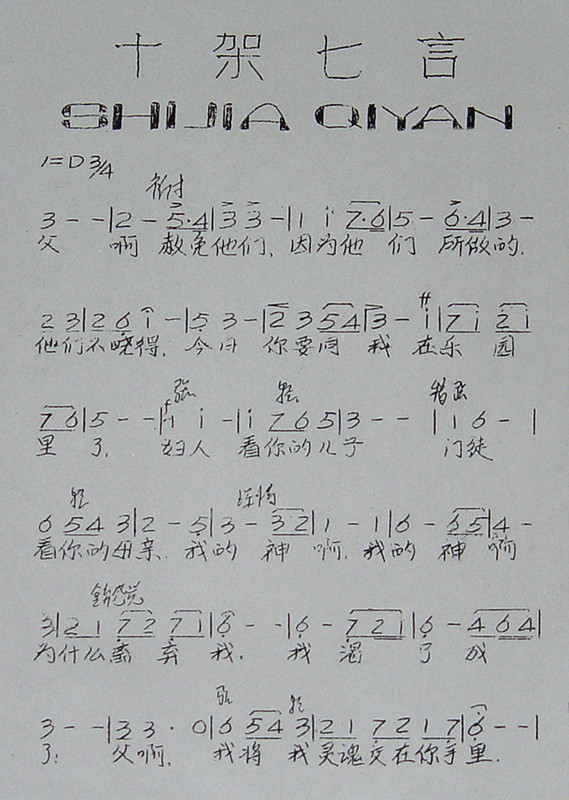 十架七言
SHIJIA QIYAN
1=D 3/4
3 - - | 2 - 5·4 | 3 3 - | 1 i 7·6 | 5 - 6·4 | 3 -
父 啊 赦免他们, 因为他 们 所做的.
2 3 | 2 6 i - | 5 3 - | 2 3 5 4 | 3 - i | 7 i 2 i
他们不晓得. 今日 你要同 我 在乐 园
7 6 | 5 - - | i i - | i 7 6 5 | 3 - - | 1 6 - |
里 了. 妇人 看你的儿子 门徒
6 5 4 3 | 2 - 5 | 3 - 3 2 | 1 - 1 | 6 - 6 5 | 4 -
看你的母亲. 我的 神 啊. 我的 神 啊
3 | 2 1 7 2 7 1 | 6 - - | 6 - 7 2 1 | 6 - 4 6 4 |
为什么离 弃 我. 我 渴 了 成
3 - - | 3 3 · 0 | 6 5 4 3 | 2 1 7 2 1 7 | 6 - - |
了: 父啊, 我将 我灵魂交在你手里.